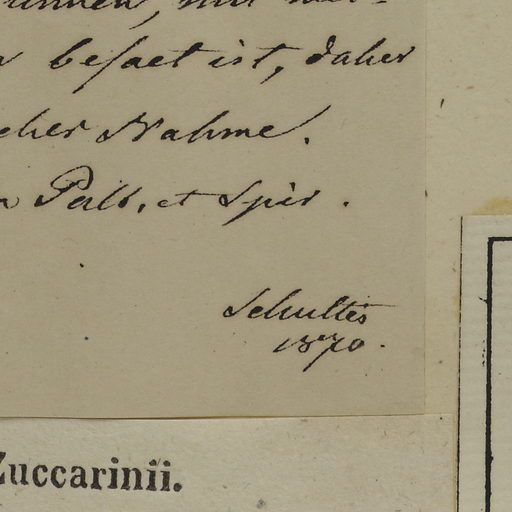 besaet ist, daher
cher Nahme.
Palb. et Spir.
Schultes
1870.
Zuccarinii.